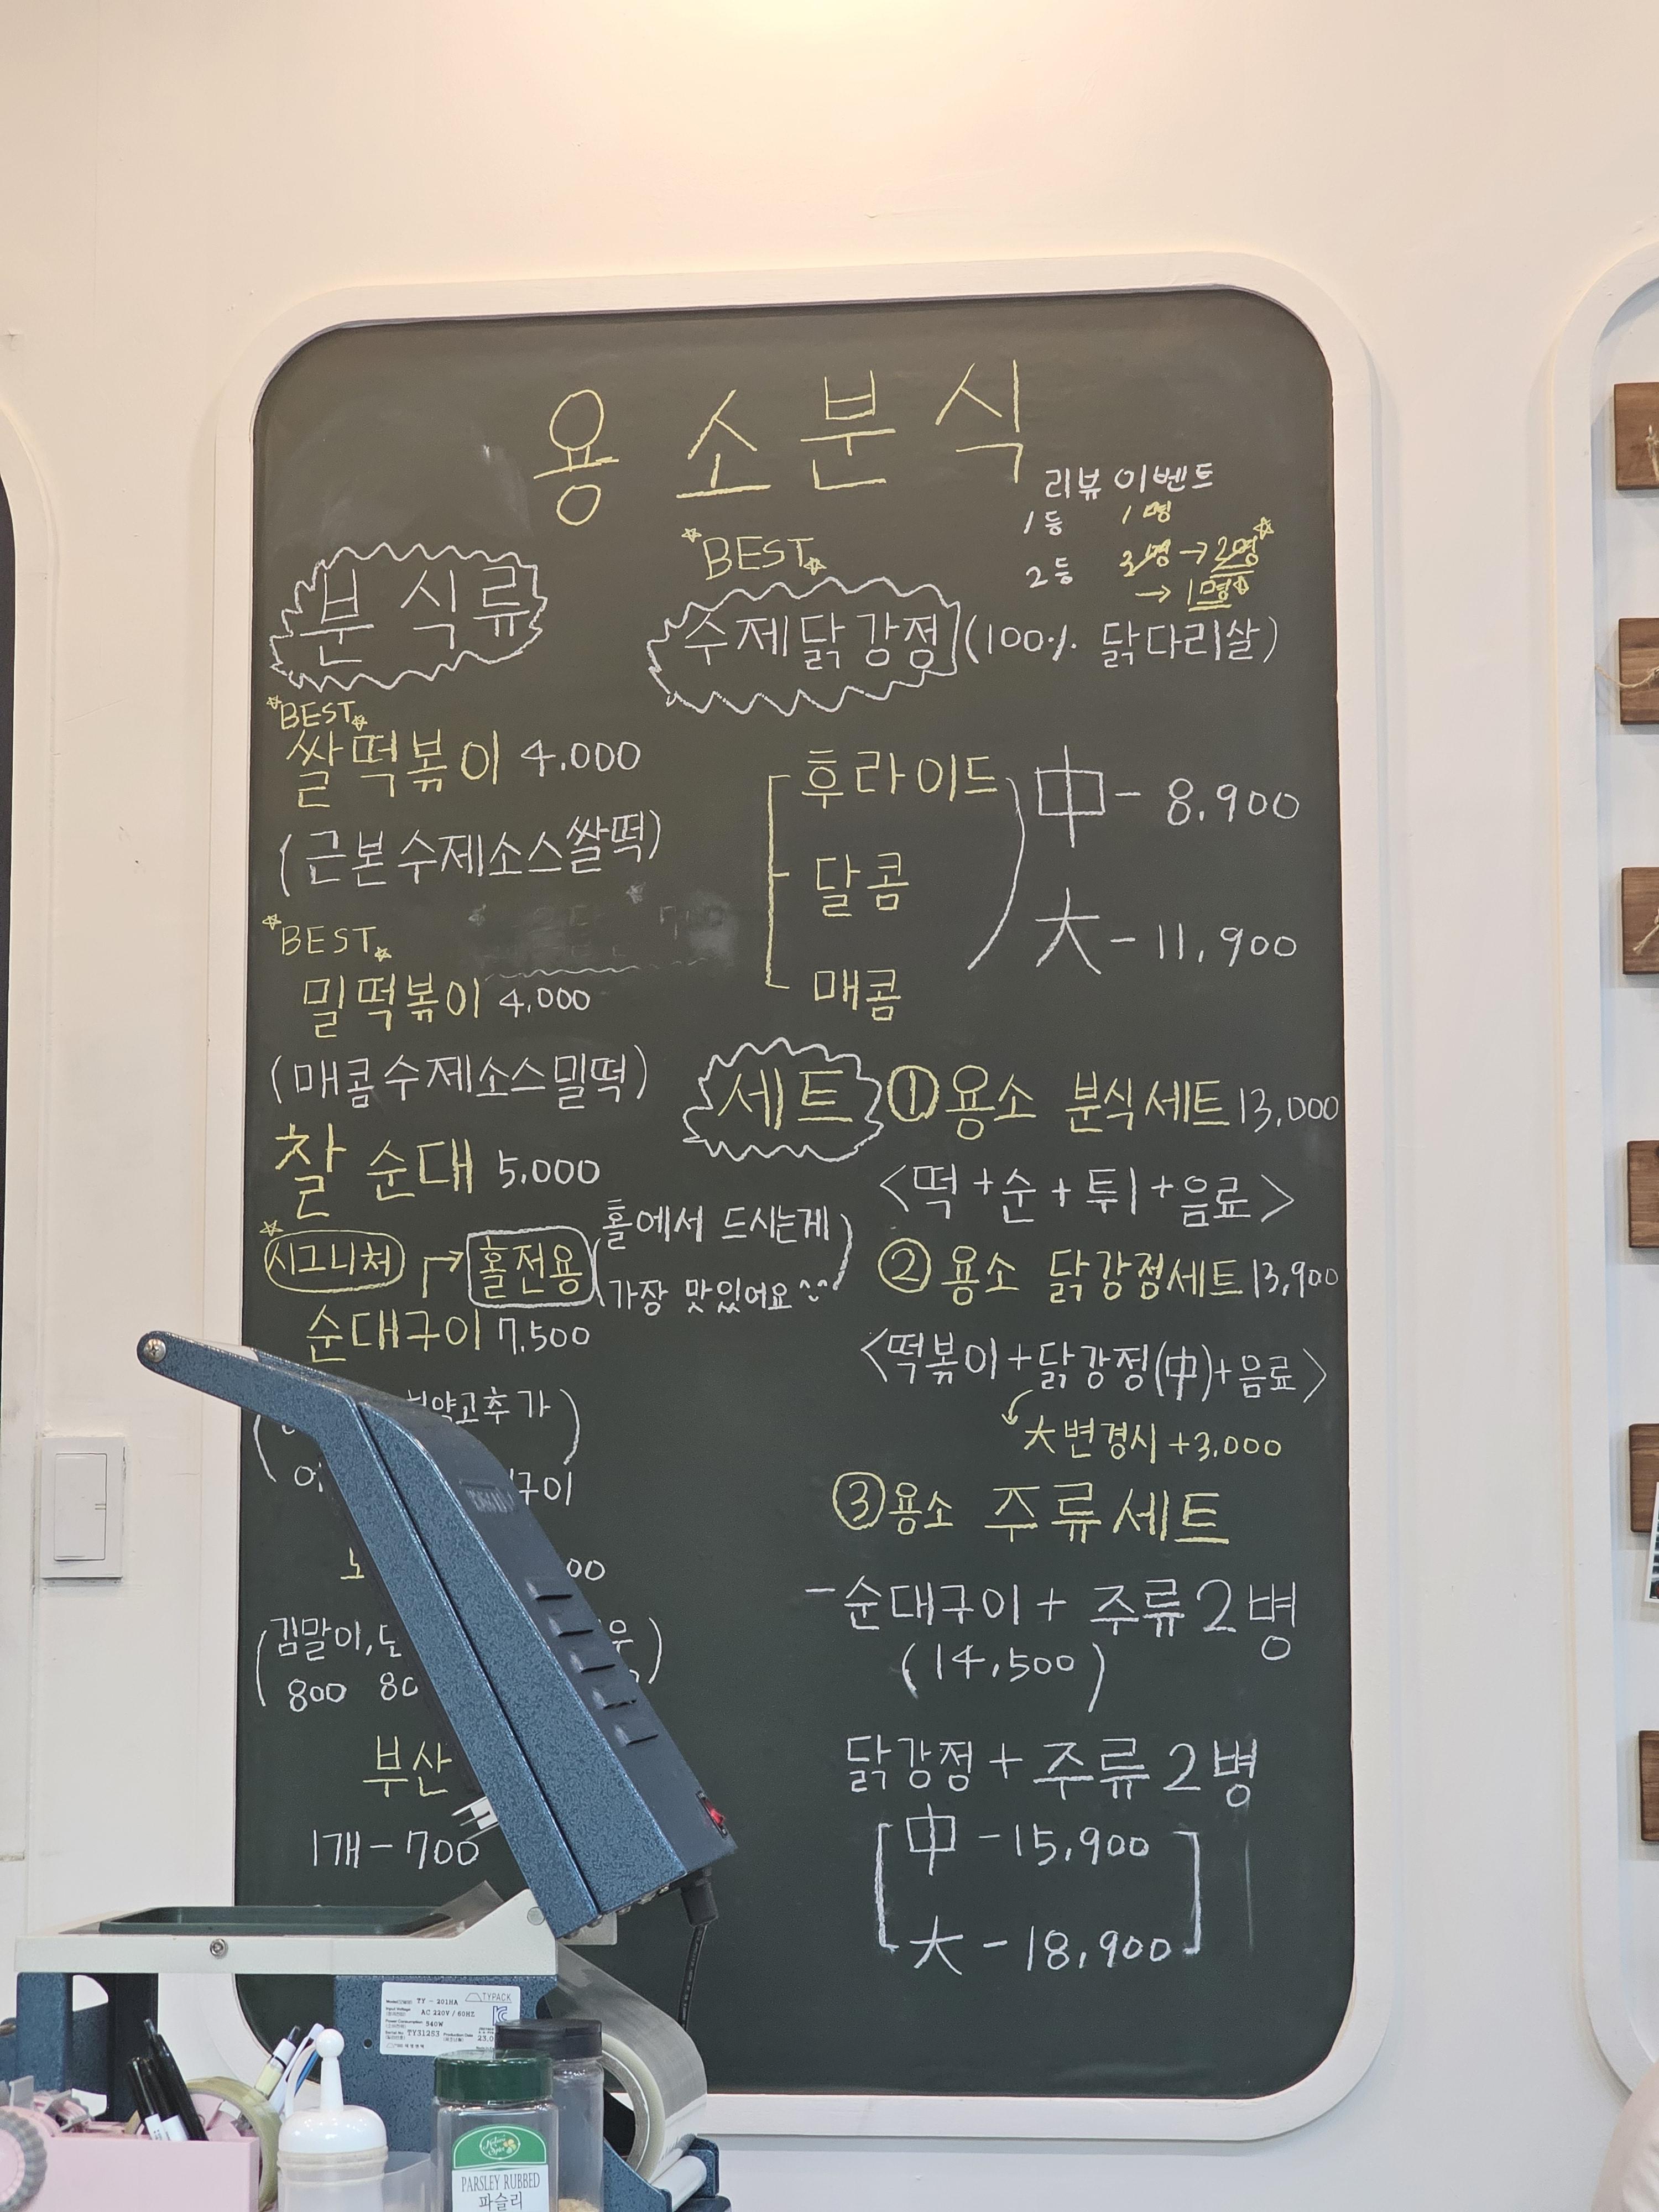 용소분식
리뷰 이벤트
1등 1명
2등 3명→2명
→1명
분식류
BEST
쌀떡볶이 4.000
(근본수제소스쌀떡)
BEST
밀떡볶이 4,000
(매콤수제소스밀떡)
찰순대 5,000
시그니처
홀전용
(홀에서 드시는게
가장 맛있어요^^)
순대구이 7.500
고추가
구이
00
(김말이,
800 80
부산
1개-700
BEST
수제닭강정(100% 닭다리살)
후라이드
달콤
매콤
中- 8.900
大-11,900
세트
①용소 분식세트13,000
<떡+순+튀+음료>
②용소 닭강정세트13,900
<떡볶이+닭강정(中)+음료>
大변경시 +3,000
③용소 주류세트
-순대구이+주류2병
(14,500)
닭강정+주류2병
中-15,900
大-18,900
TYPACK
TY-201HA
AC 220V / 60HZ
540W
TY31253
23.0
PARSLEY RUBBED
파슬리